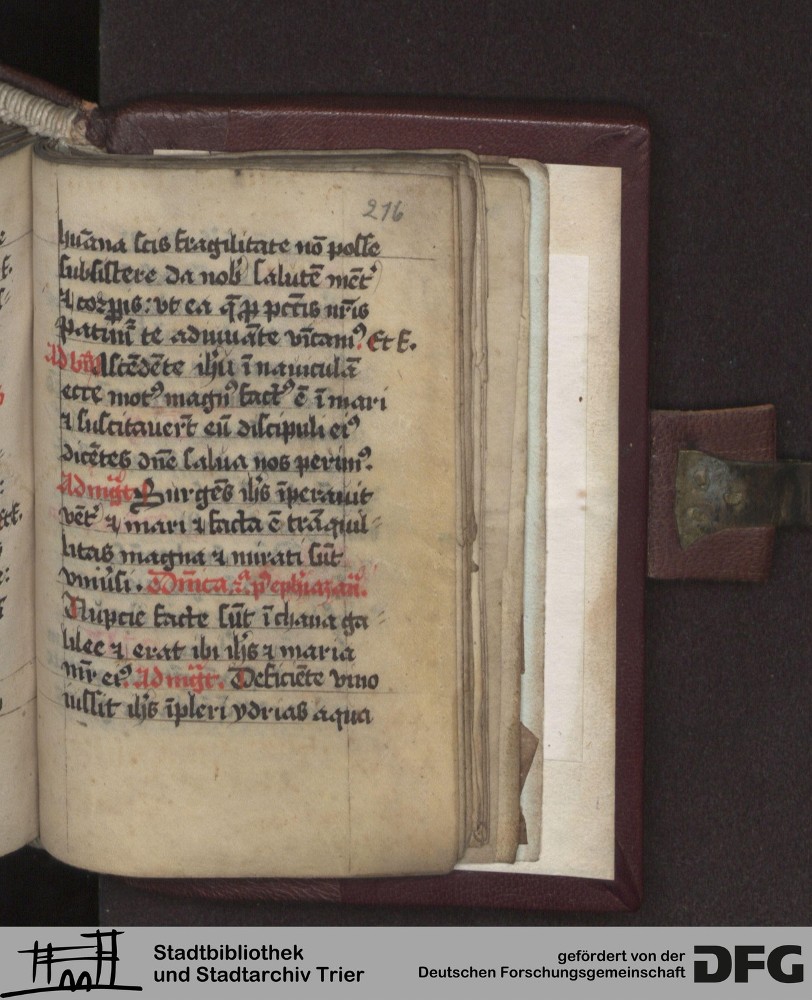 216
huīana scis fragilitate nō posse
subsistere da nobʼ salutē mētʼ
⁊ corpis: vt ea q̄ ꝓ pctīs nr̄is
Patimʼ te adiuuāte vīcamʼ. Et f.
Ad bn̄ Ascēdēte ihū ī nauiculā
ecce motꝰ magnꝰ factꝰ ē ī mari
⁊ suscitauerūt eū discipuli eiꝰ
dicētes dn̄e salua nos perimꝰ.
Ad mgt Surgēs ihs īperauit
vētʼ ⁊ mari ⁊ facta ē trāquil=
litas magna ⁊ mirati sūt
vniūsi. Dn̄ica .2.ª p' ephiazaii.
Nupcie facte sūt ī chana ga=
lilee ⁊ erat ibi ihs ⁊ maria
mr̄ eiꝰ. Ad mgt. Deficiēte vino
iussit ihs īpleri ydrias aqua
Stadtbibliothek
und Stadtarchiv Trier
gefördert von der
Deutschen Forschungsgemeinschaft
DFG